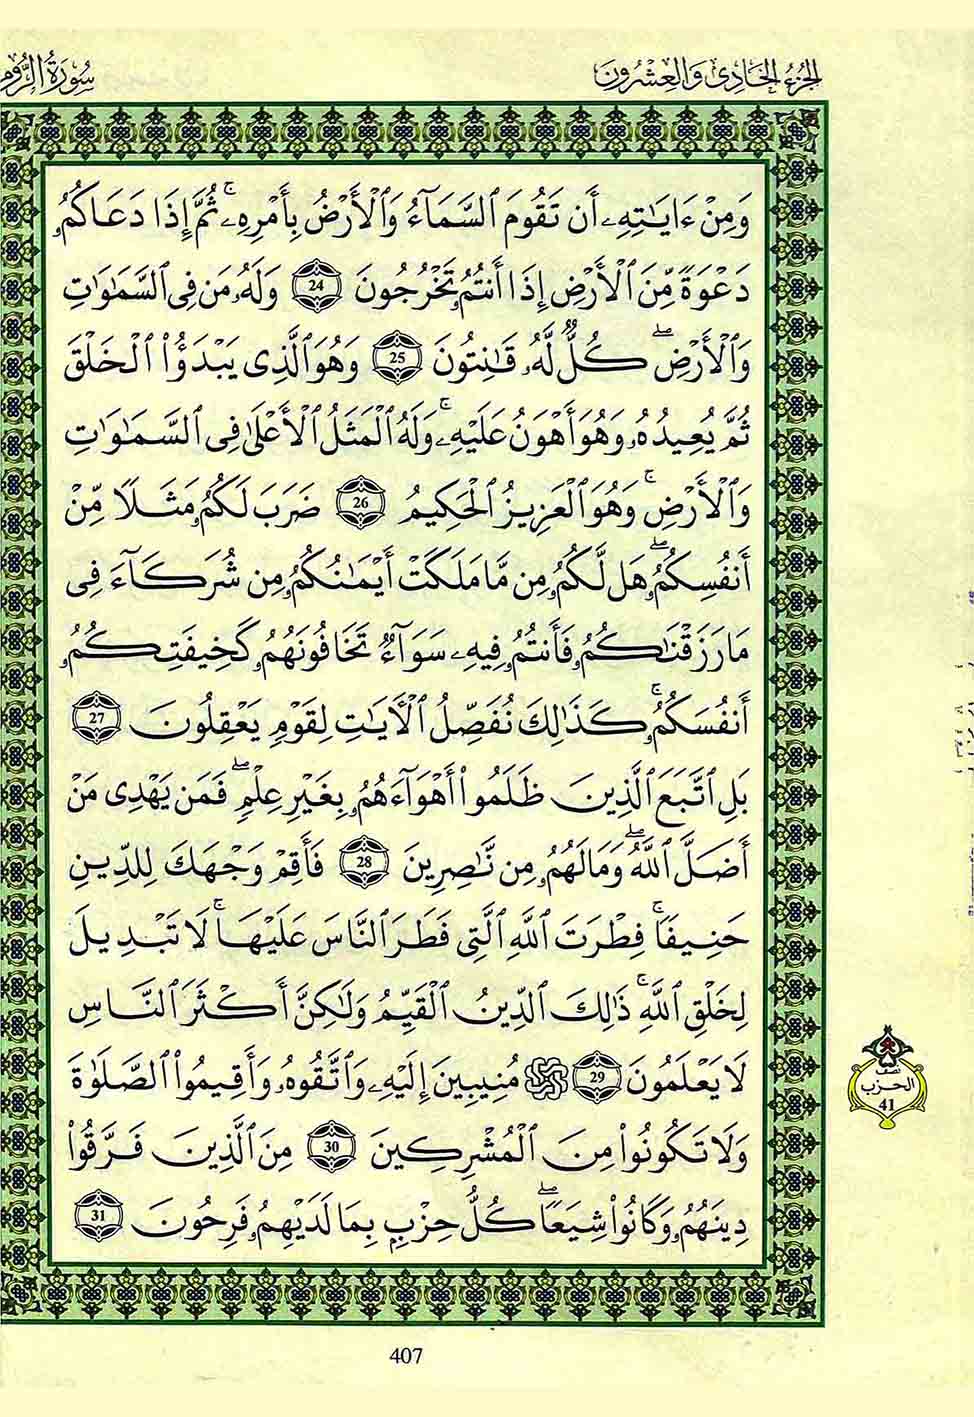 الجزء الحادي والعشرون
سورة الروم
وَمِنْ ءَايَٰتِهِۦ أَن تَقُومَ اَ۬لسَّمَآءُ وَالْأَرْضُ بِأَمْرِهِۦۚ ثُمَّ إِذَا دَعَاكُمُۥ
دَعْوَةً مِّنَ اَ۬لْأَرْضِ إِذَا أَنتُمُۥ تَخْرُجُونَ 24 وَلَهُۥ مَن فِي اِ۬لسَّمَٰوَٰتِ
وَالْأَرْضِۖ كُلٌّ لَّهُۥ قَٰنِتُونَ 25 وَهُوَ اَ۬لَّذِي يَبْدَؤُاْ اُ۬لْخَلْقَ
ثُمَّ يُعِيدُهُۥ وَهُوَ أَهْوَنُ عَلَيْهِۦۚ وَلَهُ اُ۬لْمَثَلُ اُ۬لْأَعْلَىٰ فِي اِ۬لسَّمَٰوَٰتِ
وَالْأَرْضِۚ وَهُوَ اَ۬لْعَزِيزُ اُ۬لْحَكِيمُ 26 ضَرَبَ لَكُمُۥ مَثَلًا مِّنْ
أَنفُسِكُمُۥۖ هَل لَّكُمُۥ مِن مَّا مَلَكَتْ أَيْمَٰنُكُمُۥ مِن شُرَكَآءَ فِي
مَا رَزَقْنَٰكُمُۥ فَأَنتُمُۥ فِيهِۦ سَوَآءٌ تَخَافُونَهُمُۥ كَخِيفَتِكُمُۥ
أَنفُسَكُمُۥۚ كَذَٰلِكَ نُفَصِّلُ اُ۬لْأٓيَٰتِ لِقَوْمٍ يَعْقِلُونَ 27
بَلِ اِ۪تَّبَعَ اَ۬لَّذِينَ ظَلَمُواْ أَهْوَآءَهُمُۥ بِغَيْرِ عِلْمٍۖ فَمَن يَهْدِي مَنْ
أَضَلَّ اَ۬للَّهُۖ وَمَا لَهُمُۥ مِن نَّٰصِرِينَ 28 فَأَقِمْ وَجْهَكَ لِلدِّينِ
حَنِيفًاۚ فِطْرَتَ اَ۬للَّهِ اِ۬لَّتِي فَطَرَ اَ۬لنَّاسَ عَلَيْهَاۚ لَا تَبْدِيلَ
لِخَلْقِ اِ۬للَّهِۚ ذَٰلِكَ اَ۬لدِّينُ اُ۬لْقَيِّمُ وَلَٰكِنَّ أَكْثَرَ اَ۬لنَّاسِ
لَا يَعْلَمُونَ 29 مُنِيبِينَ إِلَيْهِۦ وَاتَّقُوهُۥ وَأَقِيمُواْ اُ۬لصَّلَوٰةَ
وَلَا تَكُونُواْ مِنَ اَ۬لْمُشْرِكِينَ 30 مِنَ اَ۬لَّذِينَ فَرَّقُواْ
دِينَهُمُۥ وَكَانُواْ شِيَعًاۖ كُلُّ حِزْبٍ بِمَا لَدَيْهِمُۥ فَرِحُونَ 31
نصف
الحزب
41
407